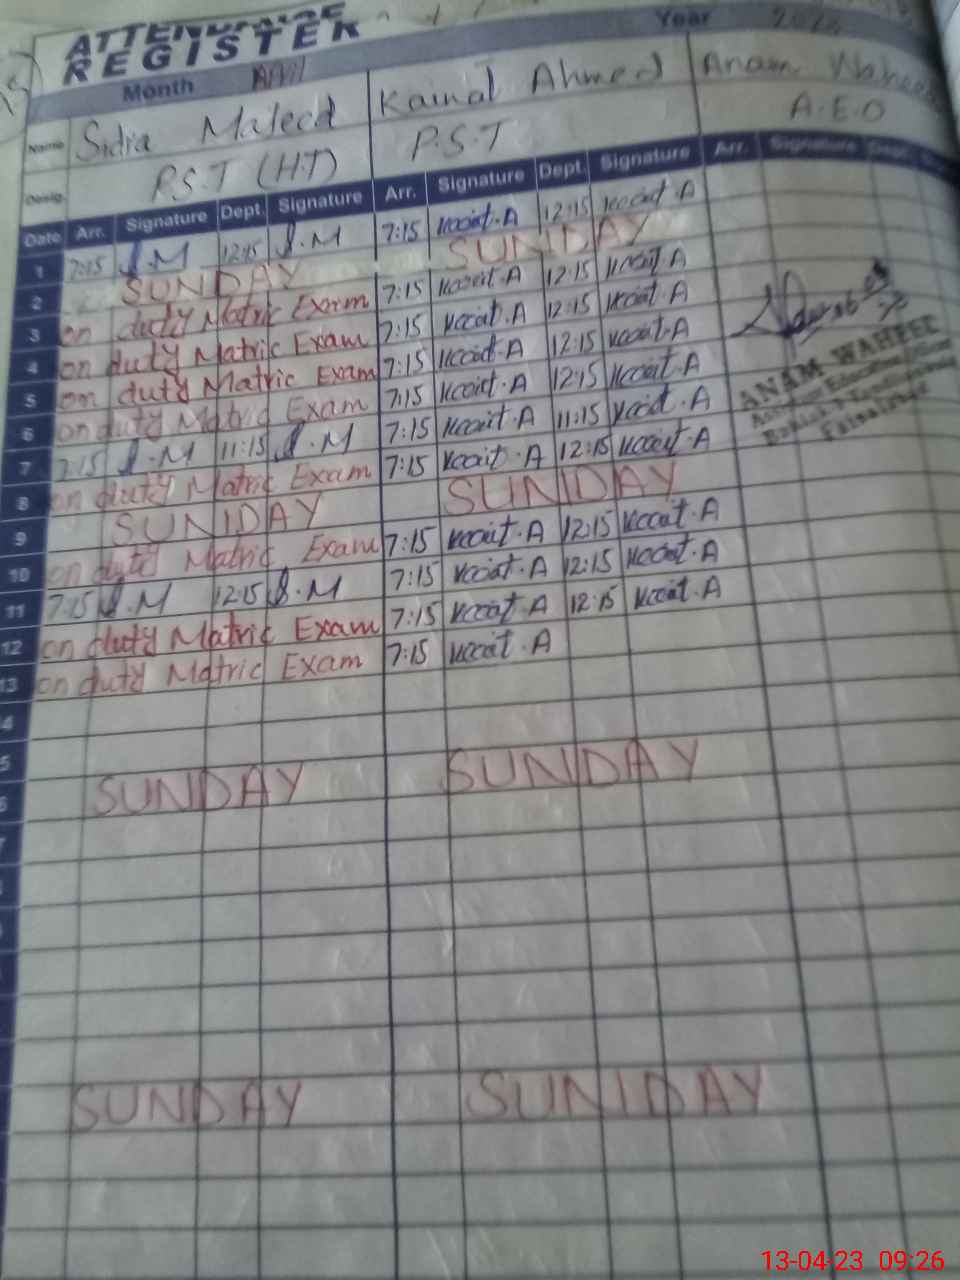 ATTENDANCE
REGISTER
Month April Year
Name Sidra Majeed Kainat Ahmed Anam Waheed
Desig. P.S.T (H.T) P.S.T A.E.O
Date Arr. Signature Dept. Signature Arr. Signature Dept. Signature Arr. Signature Dept.
1 7:15 S.M 12:15 S.M 7:15 Kainat.A 12:15 Kainat.A
2 SUNDAY SUNDAY
3 on duty Matric Exam 7:15 Kainat.A 12:15 Kainat.A
4 on duty Matric Exam 7:15 Kainat.A 12:15 Kainat.A
5 on duty Matric Exam 7:15 Kainat.A 12:15 Kainat.A
6 on duty Matric Exam 7:15 Kainat.A 12:15 Kainat.A
7 7:15 S.M 11:15 S.M 7:15 Kainat.A 11:15 Kainat.A
8 on duty Matric Exam 7:15 Kainat.A 12:15 Kainat.A
9 SUNDAY SUNDAY
10 on duty Matric Exam 7:15 Kainat.A 12:15 Kainat.A
11 7:15 S.M 12:15 S.M 7:15 Kainat.A 12:15 Kainat.A
12 on duty Matric Exam 7:15 Kainat.A 12:15 Kainat.A
13 on duty Matric Exam 7:15 Kainat.A
4
5
6 SUNDAY SUNDAY
SUNDAY SUNDAY
ANAM WAHEED
13-04-23 09:26